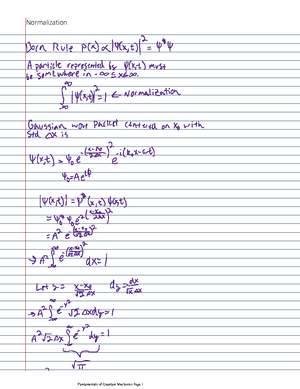 Normalization
Born Rule P(x) ∝ |Ψ(x,t)|² = Ψ*Ψ
A particle represented by Ψ(x,t) must
be somewhere in -∞ ≤ x ≤ ∞.
∫_{-∞}^{∞} |Ψ(x,t)|² = 1 ← Normalization
Gaussian wave packet centered on x₀ with
Std. Δx is
Ψ(x,t) = Ψ₀ e^{-(x-x₀ / 2Δx)²} e^{-i(k₀x-ωt)}
Ψ₀ = Ae^{iφ}
|Ψ(x,t)| = Ψ*(x,t) Ψ(x,t)
= Ψ₀* Ψ₀ e^{-2(x-x₀ / 2Δx)²}
= A² e^{-(x-x₀ / √2Δx)²}
→ A² ∫_{-∞}^{∞} e^{-(x-x₀ / √2Δx)²} dx = 1
Let y = x-x₀ / √2 Δx dy = dx / √2 Δx
→ A² ∫_{-∞}^{∞} e^{-y²} √2 Δx dy = 1
A² √2 Δx ∫_{-∞}^{∞} e^{-y²} dy = 1
√π
Fundamentals of Quantum Mechanics Page 1